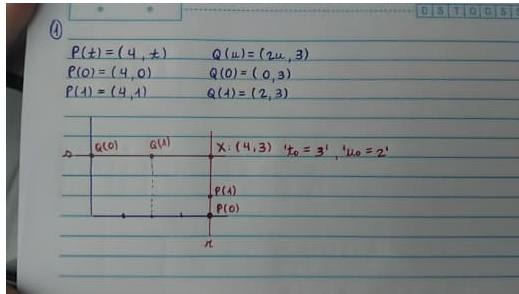 D S T Q Q S
①
P(t) = (4, t) Q(u) = (2u, 3)
P(0) = (4,0) Q(0) = (0,3)
P(1) = (4,1) Q(1) = (2,3)
s Q(0) Q(1) X: (4,3) 't₀ = 3', 'u₀ = 2'
P(1)
P(0)
r